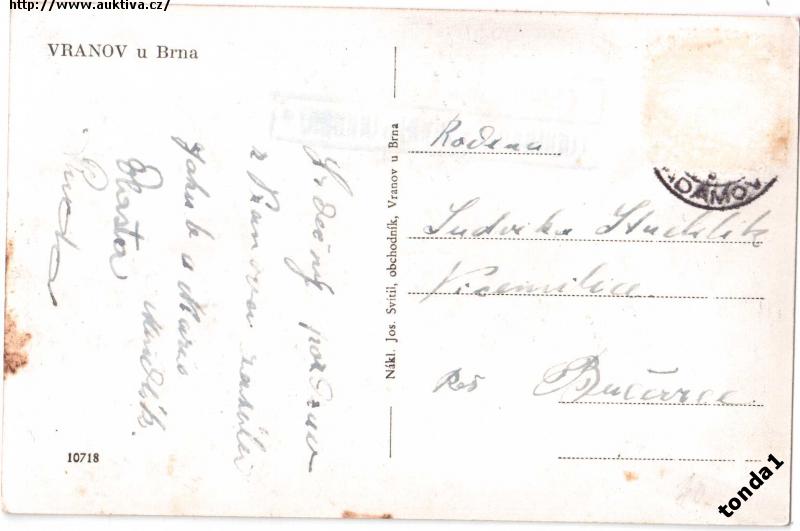 http://www.auktiva.cz/
VRANOV u Brna
Srdečný pozdrav
z Vranova zasílá
Jakub a Marie
Vlasta
Nákl. Jos. Svítil, obchodník, Vranov u Brna
Rodina
Ludvíka Stuchlík
Vícemilice
Bučovice
ADAMO
10718
tonda1